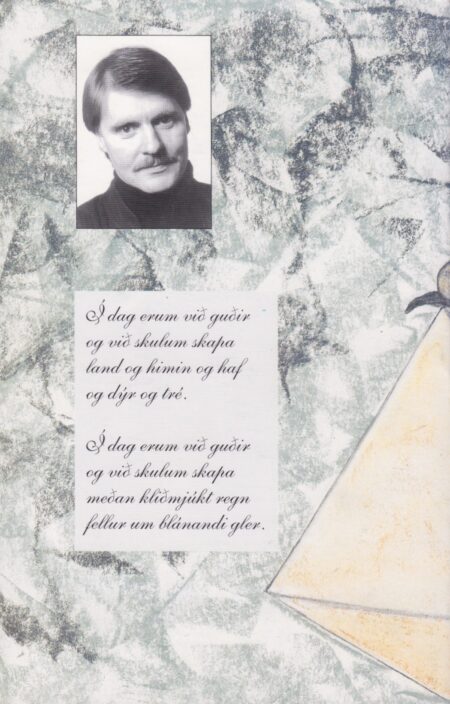 Í dag erum við guðir
og við skulum skapa
land og himin og haf
og dýr og tré.
Í dag erum við guðir
og við skulum skapa
meðan kliðmjúkt regn
fellur um blánandi gler.